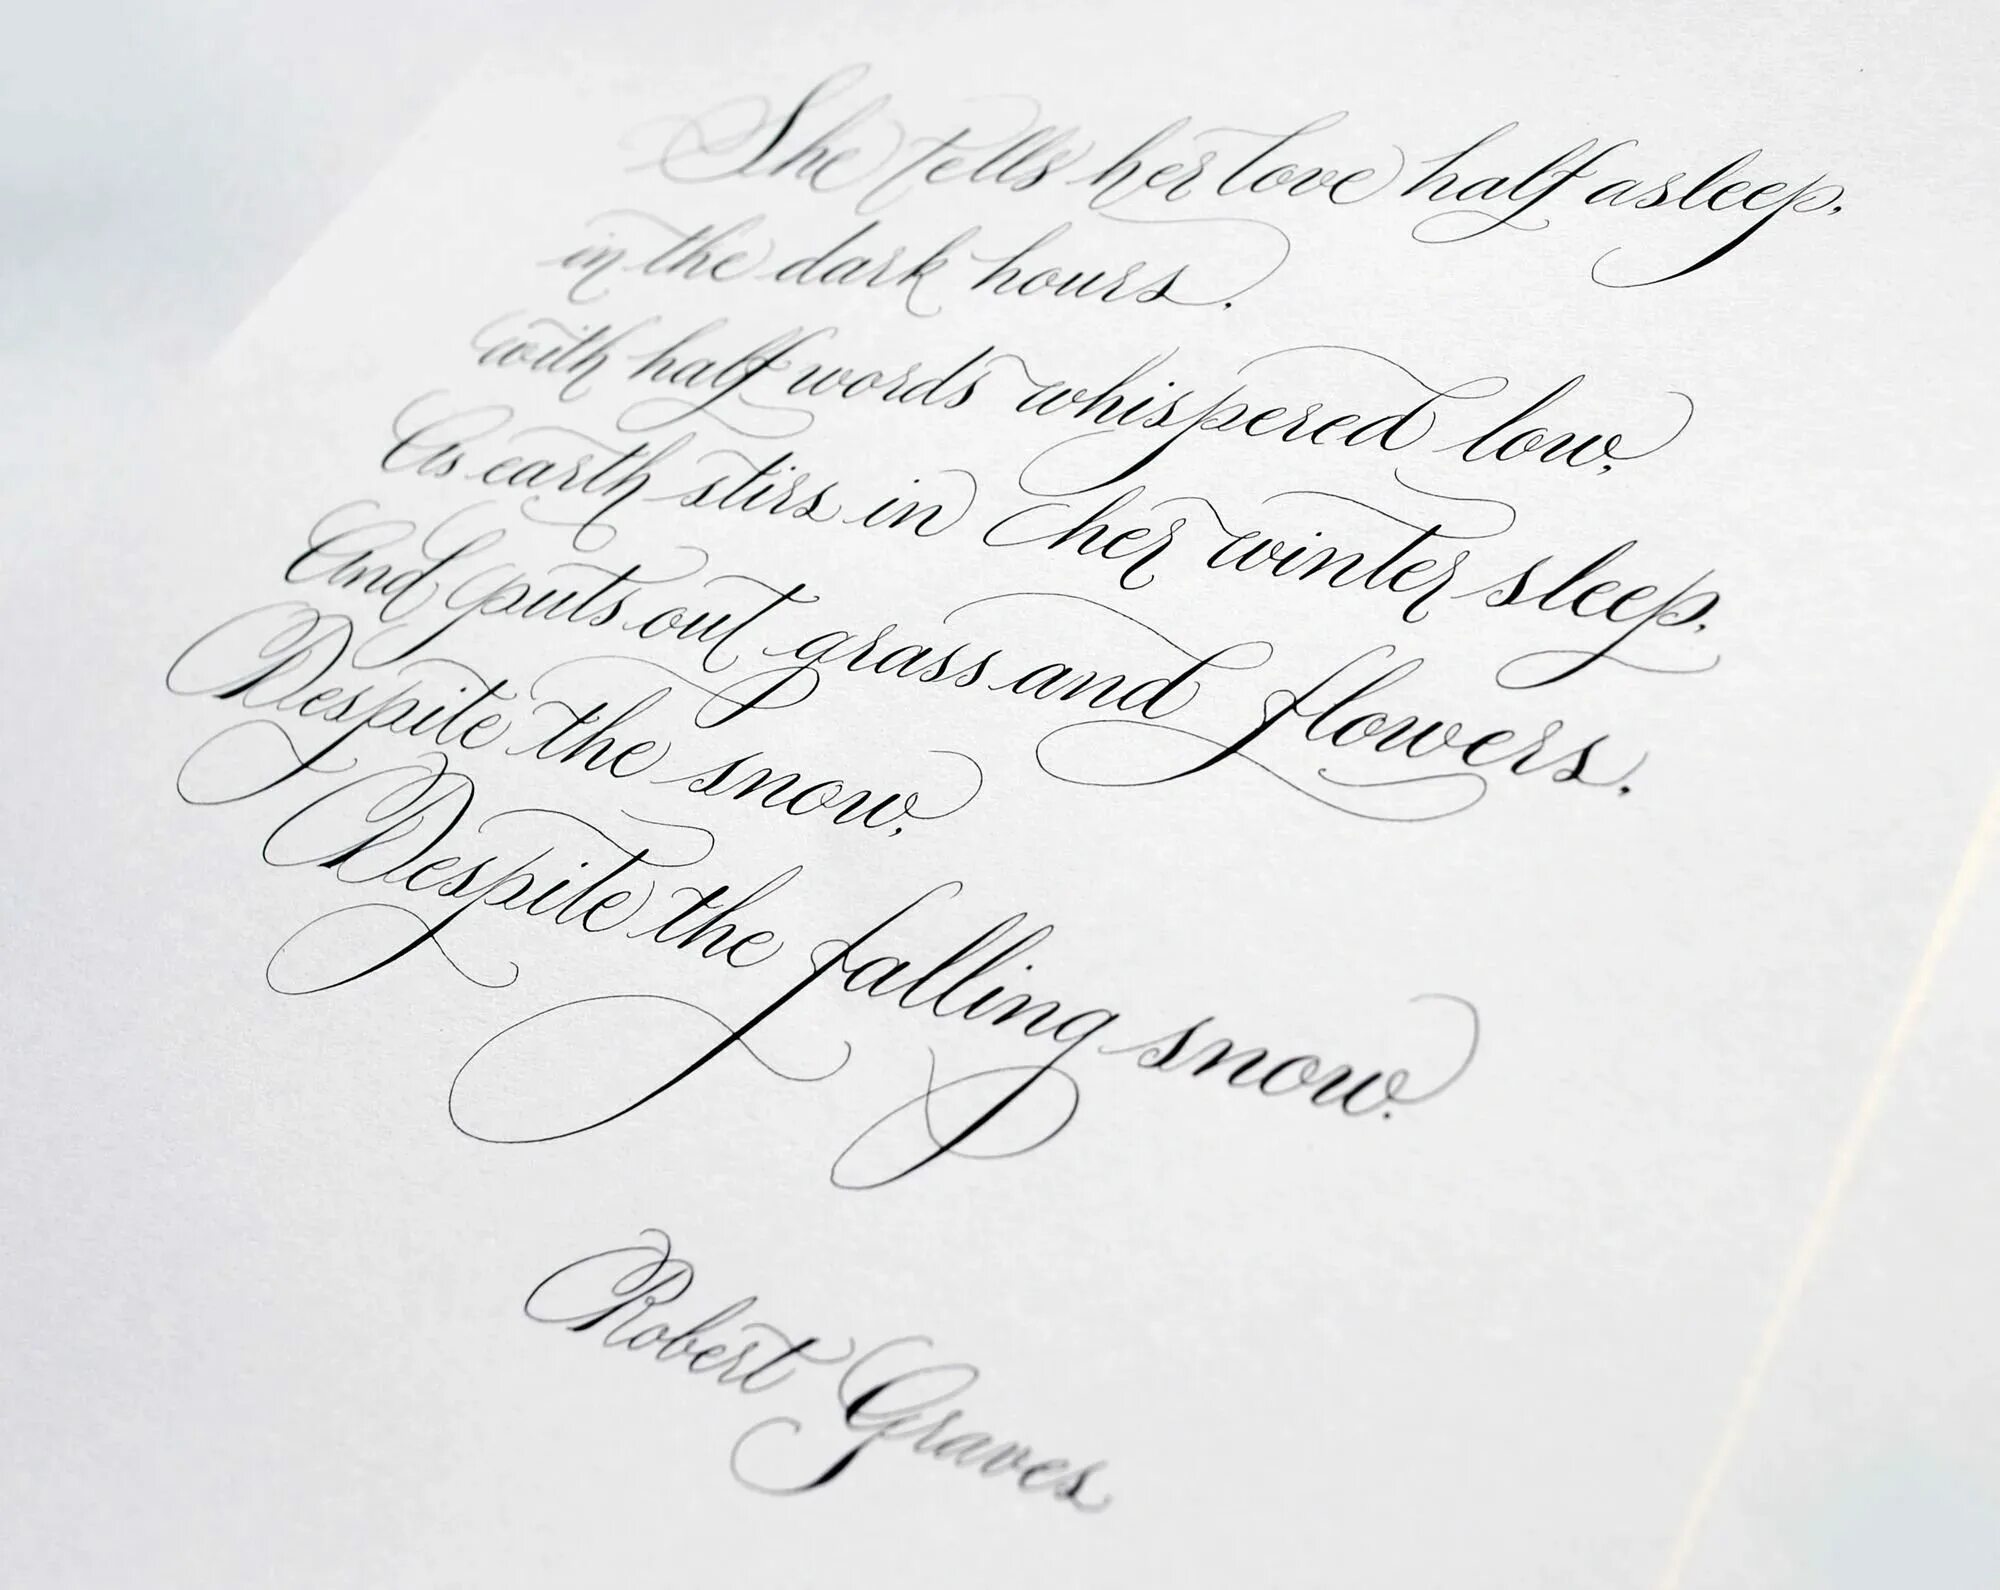 She tells her love half asleep,
in the dark hours,
with half words whispered low,
As earth stirs in her winter sleep,
And puts out grass and flowers,
Despite the snow,
Despite the falling snow.
Robert Graves